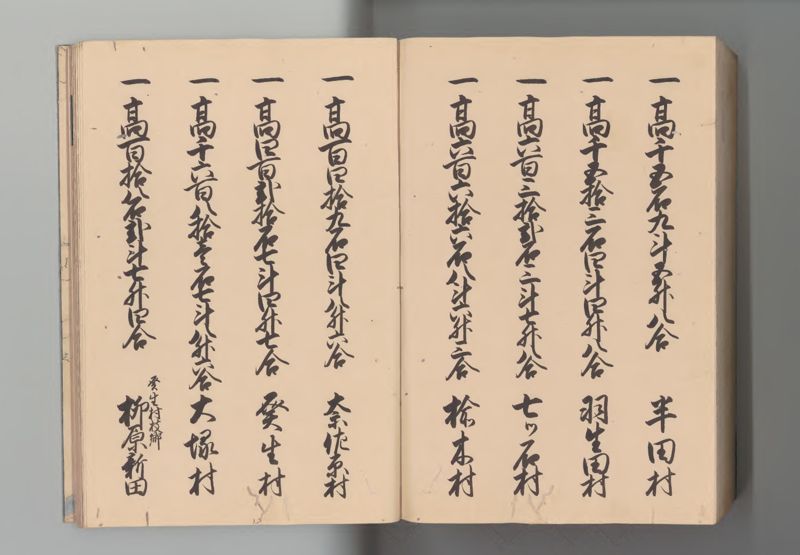 一 高千五石九斗五升八合 半田村
一 高千五拾三石四斗四升八合 羽生田村
一 高六百三拾弐石二斗七升八合 七ツ石村
一 高六百六拾六石八斗六升三合 楡木村
一 高百四拾九石四斗八升六合 奈佐原村
一 高四百弐拾石七斗四升七合 癸生村
一 高千六百八拾壱石七斗八升六合 大塚村
一 高百拾八石弐斗七升四合 癸生村枝郷 柳原新田